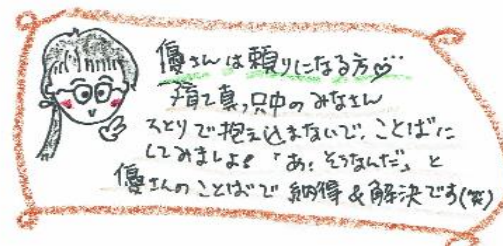 優さんは頼りになる方♡
育て真っ只中のみなさん
ひとりで抱え込まないで、ことばに
してみましょ！「あ！そうなんだ」と
優さんのことばで納得＆解決です(笑)